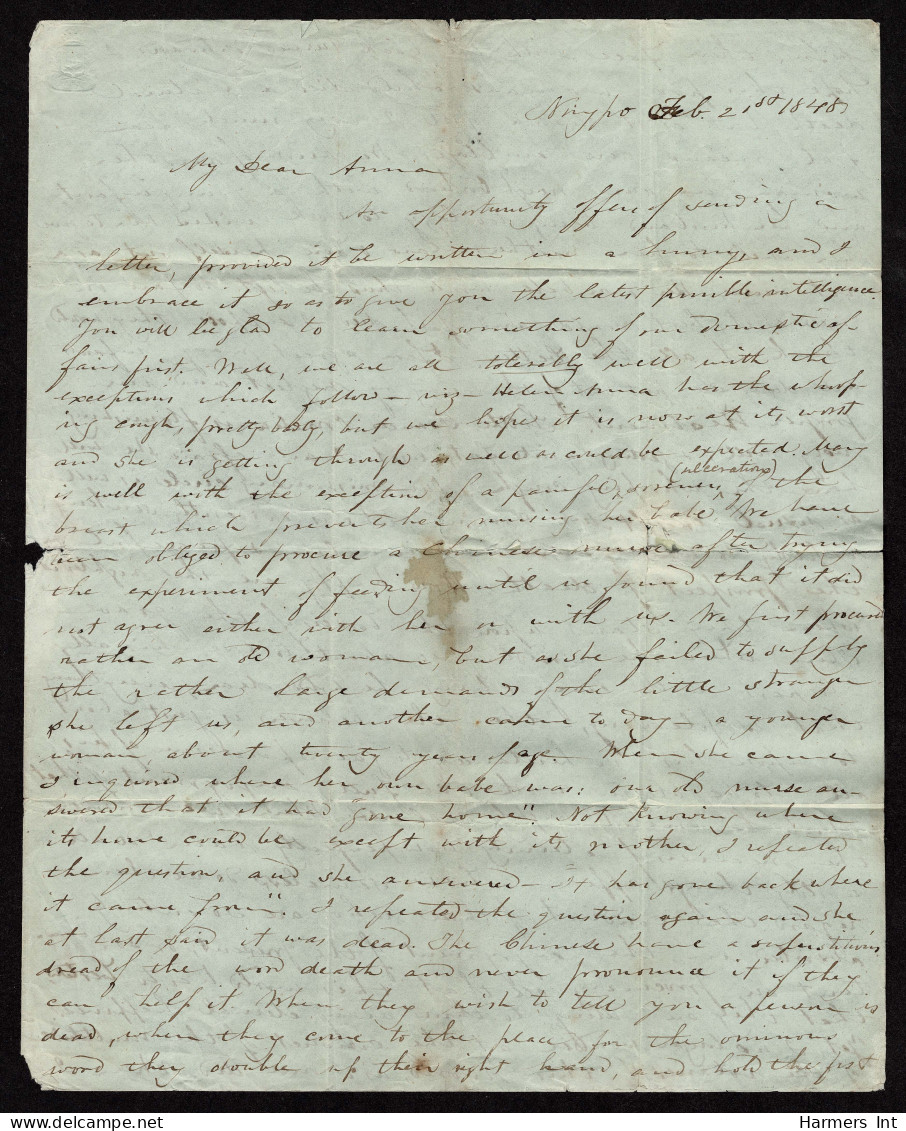 Ningpo Feb. 21st 1848
My Dear Anna
An opportunity offers of sending a
letter, provided it be written in a hurry, and I
embrace it so as to give you the latest possible intelligence.
You will be glad to learn something of our domestic af-
fairs first. Well, we are all tolerably well with the
exceptions which follow - viz - Helen Anna has the whoop-
ing cough, pretty badly, but we hope it is now at its worst
and she is getting through as well as could be expected. Mary
is well with the exception of a painful soreness (ulceration) of the
breast which prevents her nursing her babe. We have
been obliged to procure a Chinese nurse after trying
the experiment of feeding until we found that it did
not agree either with her or with us. We first procured
rather an old woman, but as she failed to supply
the rather large demands of the little stranger
she left us, and another came to day - a younger
woman, about twenty years of age. When she came
I inquired where her own babe was: our old nurse an-
swered that it had "gone home". Not knowing where
its home could be except with its mother, I repeated
the question, and she answered - "It has gone back where
it came from". I repeated the question again and she
at last said it was dead. The Chinese have a superstitious
dread of the word death and never pronounce it if they
can help it. When they wish to tell you a person is
dead, when they come to the place for the ominous
word they double up their right hand, and hold the fist
Harmers Int